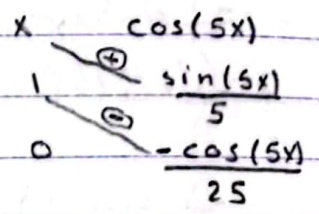 x cos(5x)
⊕
1 sin(5x)/5
⊖
0 -cos(5x)/25